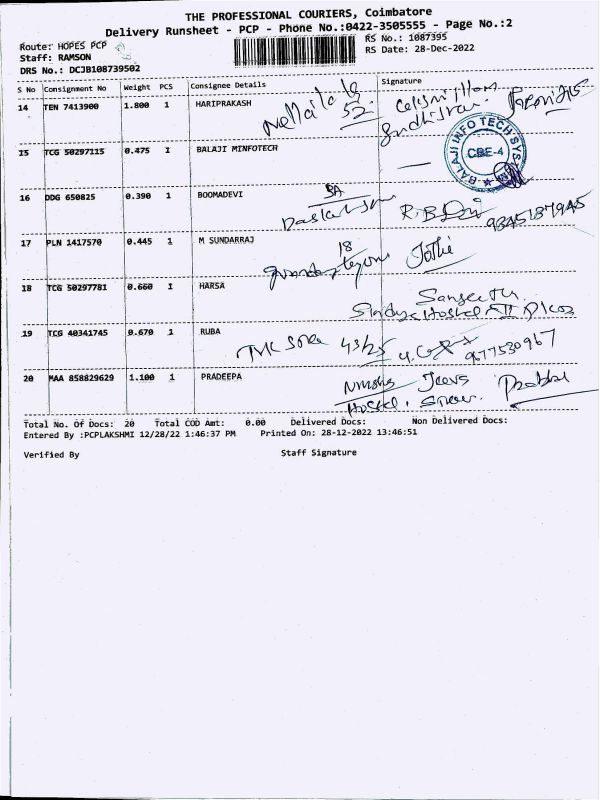 THE PROFESSIONAL COURIERS, Coimbatore
Delivery Runsheet - PCP - Phone No.:0422-3505555 - Page No.:2
Route: HOPES PCP
RS No.: 1087395
Staff: RAMSON
RS Date: 28-Dec-2022
DRS No.: DCJB108739502
S No Consignment No Weight PCS Consignee Details Signature
14 TEN 7413900 1.800 1 HARIPRAKASH
52
15 TCG 50297115 0.475 1 BALAJI MINFOTECH
BALAJI INFO TECH SYS
CBE-4
16 DDG 650825 0.390 1 BOOMADEVI
17 PLN 1417570 0.445 1 M SUNDARRAJ
18
18 TCG 50297781 0.660 1 HARSA
Sangeetha
Hostel
19 TCG 40341745 0.670 1 RUBA
43/25
9677530967
20 MAA 858829629 1.100 1 PRADEEPA
Hostel
Total No. Of Docs: 20 Total COD Amt: 0.00 Delivered Docs: Non Delivered Docs:
Entered By :PCPLAKSHMI 12/28/22 1:46:37 PM Printed On: 28-12-2022 13:46:51
Verified By Staff Signature